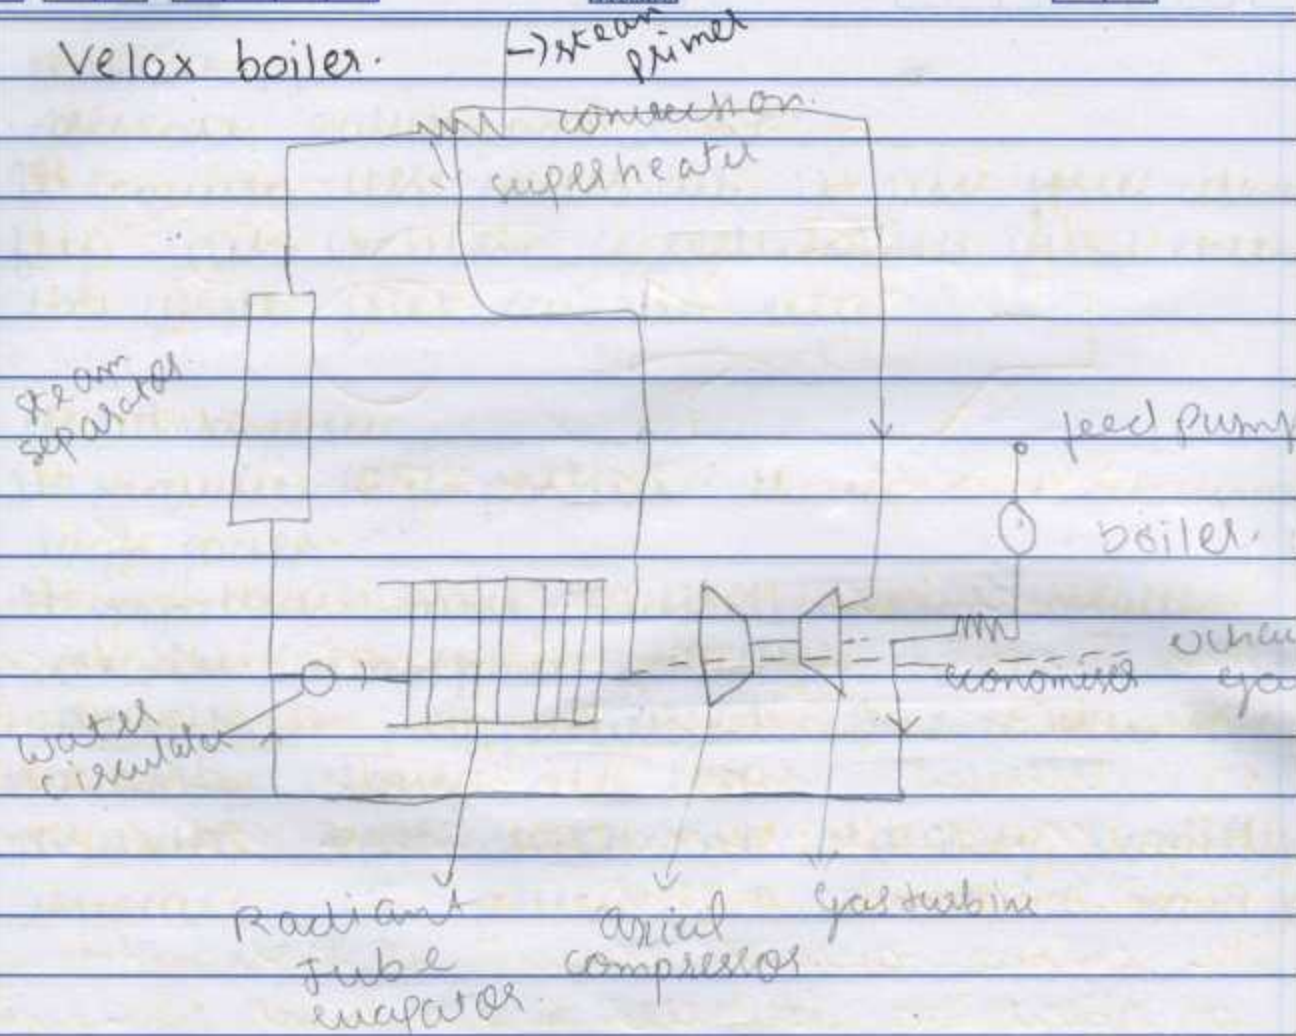 Velox boiler.
→ steam
primer
convection
superheater
steam
separator.
feed pump
boiler.
economiser
water
circulator
Radiant
Tube
evapator.
axial
compressor.
gas turbine